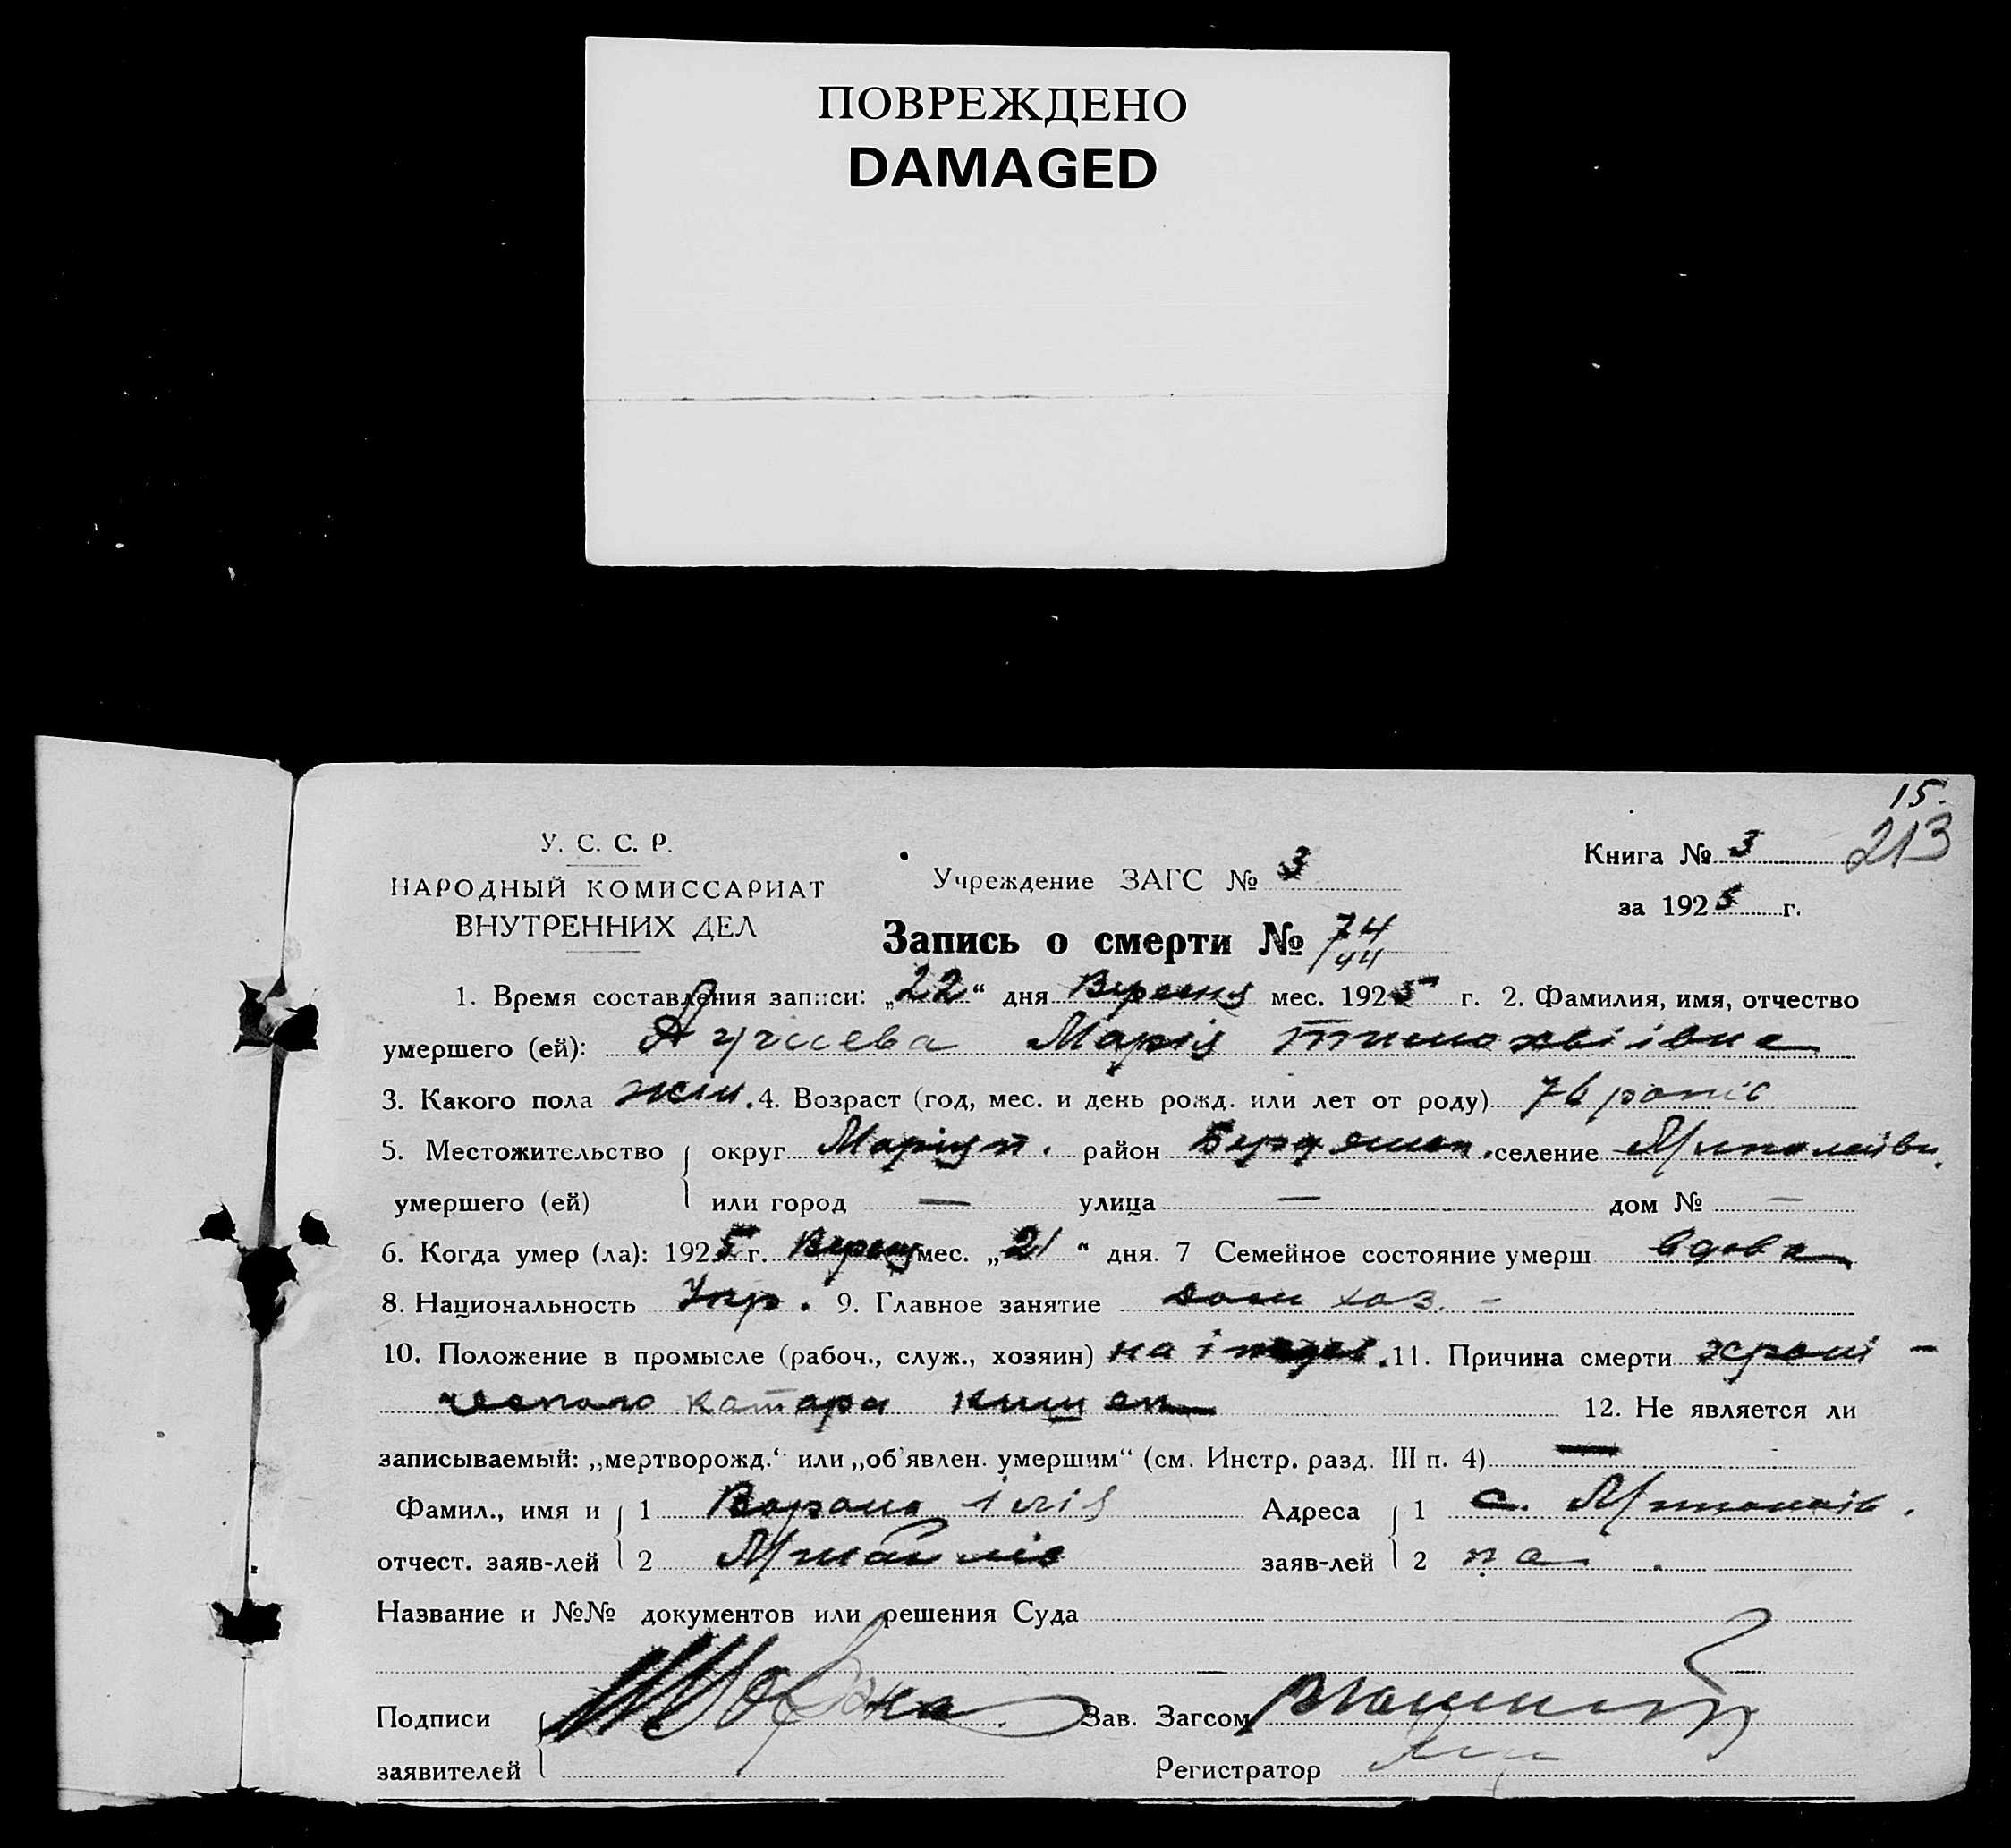 ПОВРЕЖДЕНО
DAMAGED
15.
213
У. С. С. Р.
НАРОДНЫЙ КОМИССАРИАТ
ВНУТРЕННИХ ДЕЛ
Учреждение ЗАГС № 3
Книга № 3
за 1925 г.
Запись о смерти № 74
44
1. Время составления записи: „22“ дня Вересня мес. 1925 г. 2. Фамилия, имя, отчество
умершего (ей): Марія Тимохвіївна
3. Какого пола жін. 4. Возраст (год, мес. и день рожд. или лет от роду) 76 років
5. Местожительство округ Маріуп. район Бердянск. селение
умершего (ей) или город — улица — дом № —
6. Когда умер (ла): 1925 г. Вересн мес. „21“ дня. 7 Семейное состояние умерш вдова
8. Национальность Укр. 9. Главное занятие дом хаз. -
10. Положение в промысле (рабоч., служ., хозяин) на 11. Причина смерти хроні-
ческого катара кишек
12. Не является ли
записываемый: „мертворожд.“ или „об'явлен. умершим“ (см. Инстр. разд. III п. 4) —
Фамил., имя и 1 Ворона Ілія Адреса 1 с.
отчест. заяв-лей 2 заяв-лей 2 ка
Название и №№ документов или решения Суда
Подписи Зав. Загсом
заявителей Регистратор